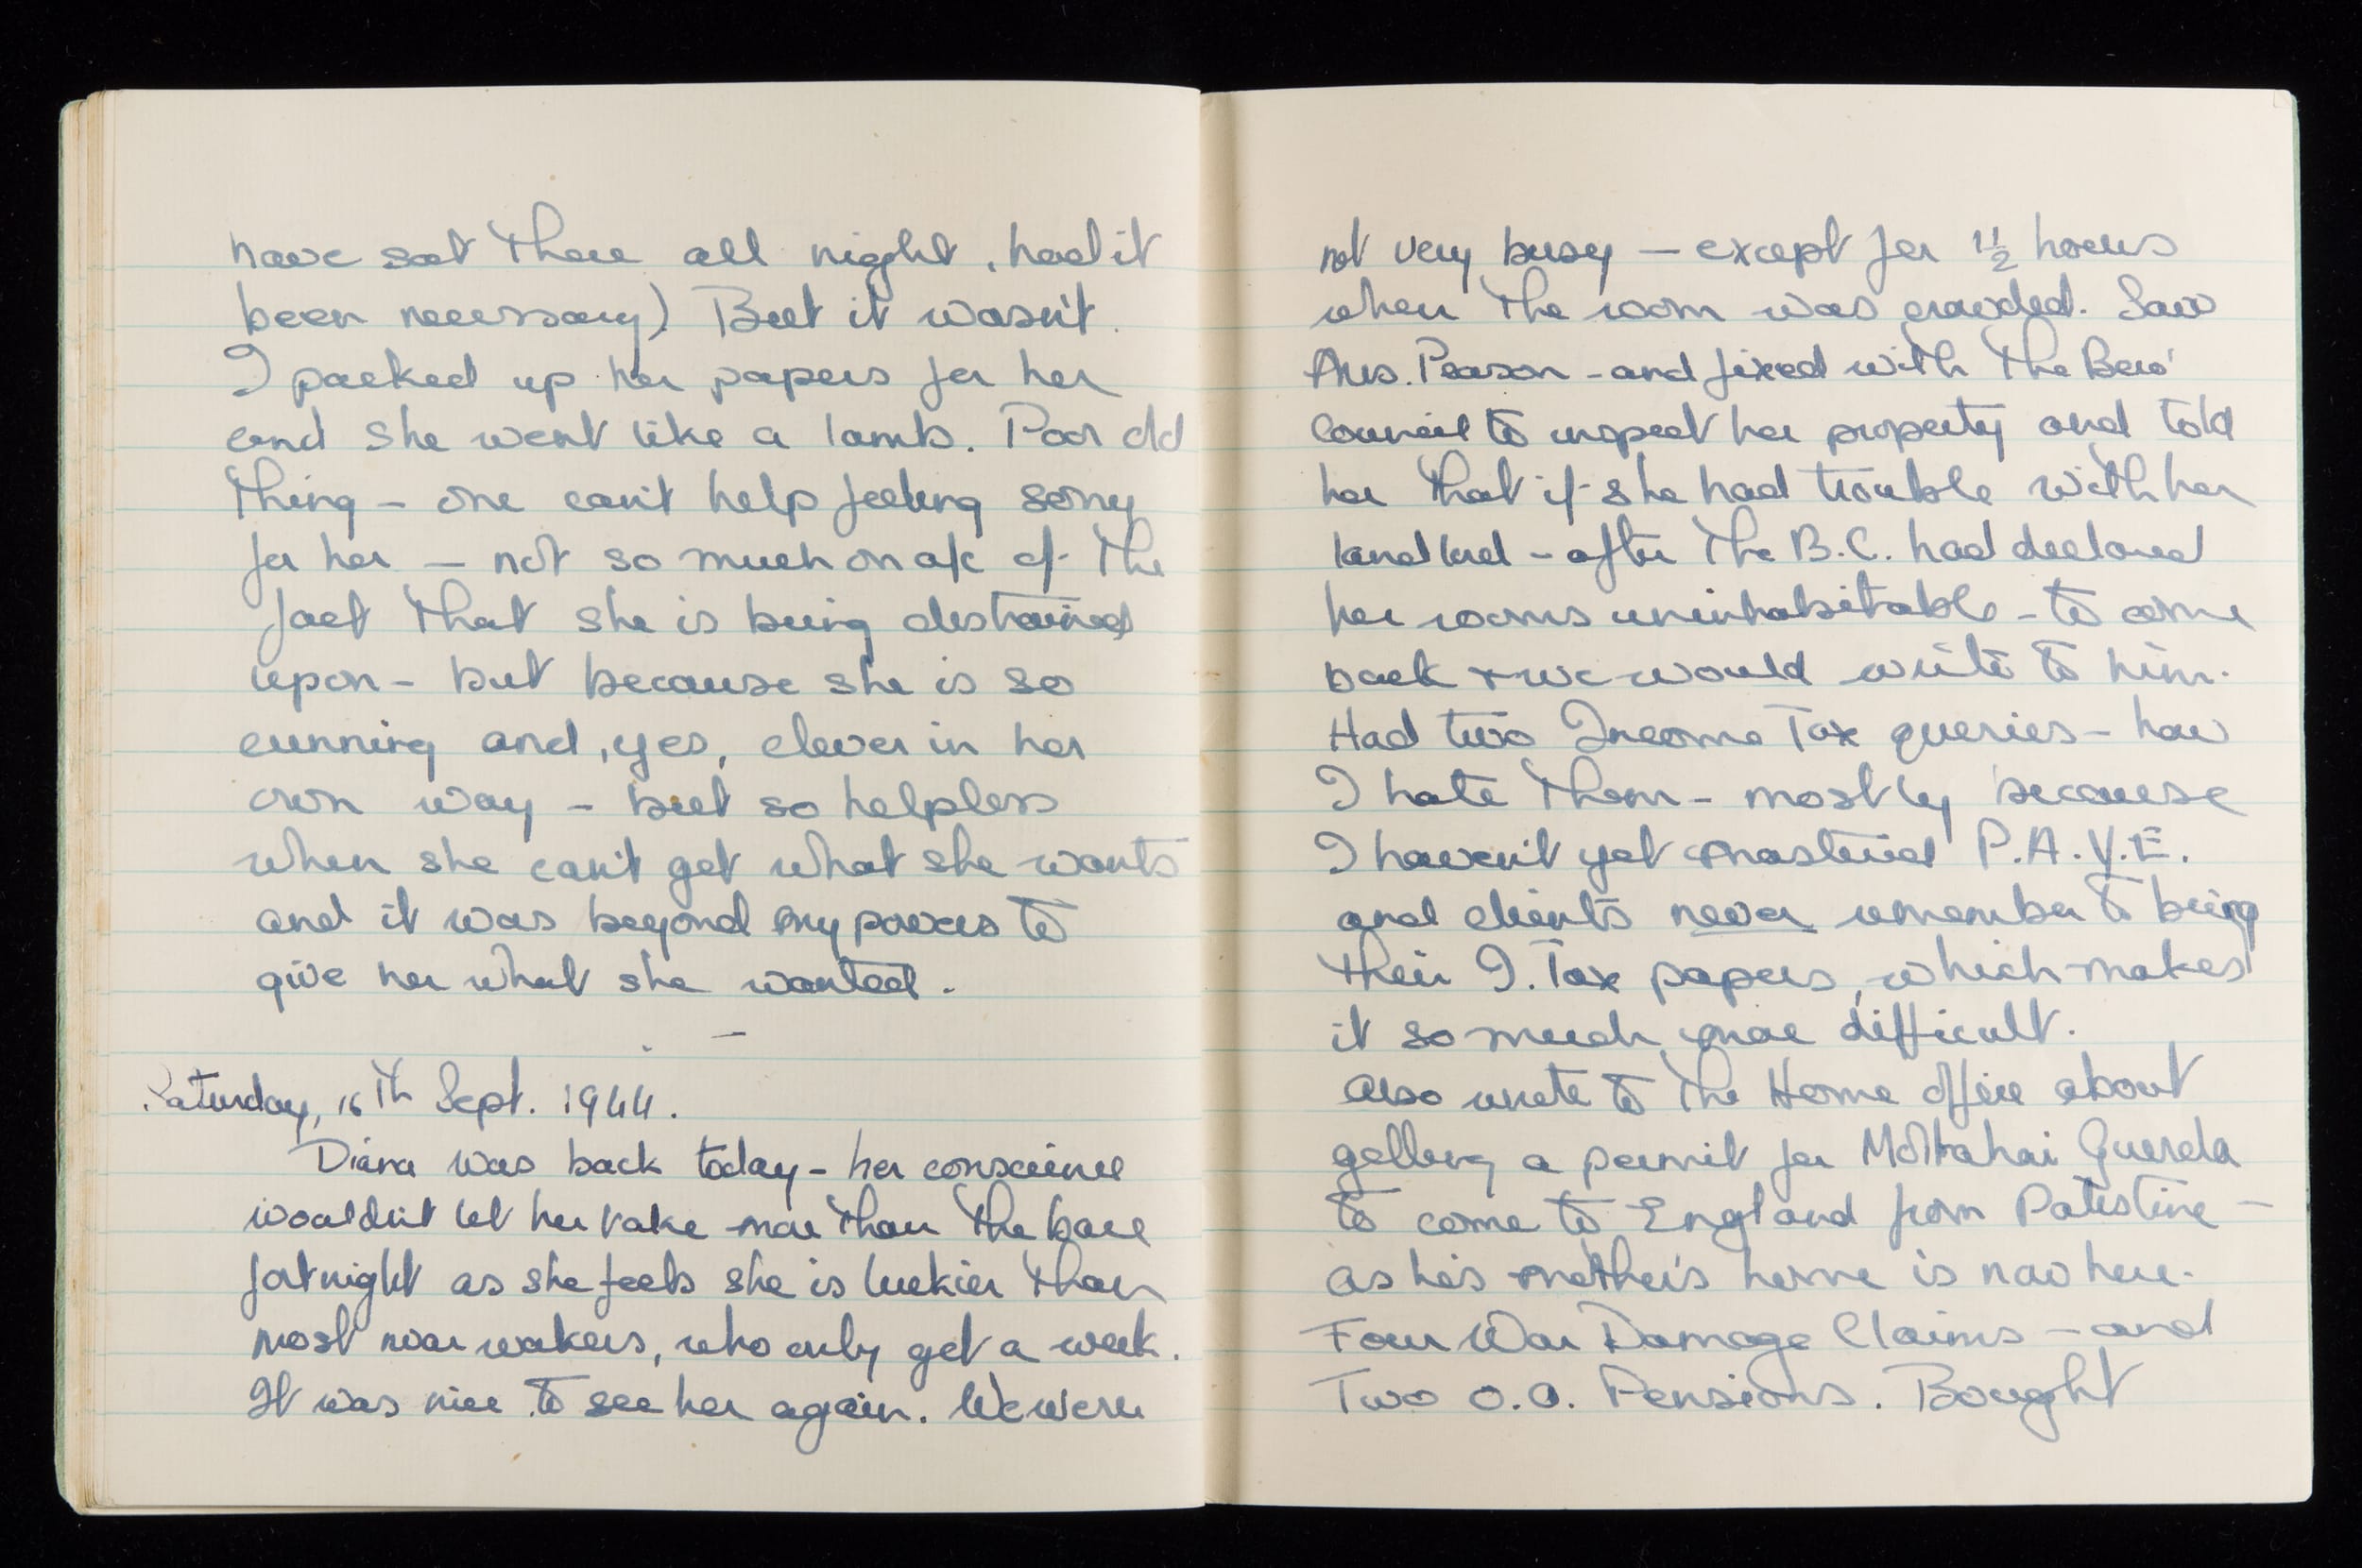 have sat there all night, had it
been necessary) But it wasn't.
I packed up her papers for her
and she went like a lamb. Poor old
thing – one can't help feeling sorry
for her – not so much on a/c of the
fact that she is being destrained
upon – but because she is so
cunning and, yes, clever in her
own way – but so helpless
when she can't get what she wants
and it was beyond my powers to
give her what she wanted.
Saturday, 16th Sept. 1944.
Diana was back today – her conscience
wouldn't let her take more than the bare
fortnight as she feels she is luckier than
most war workers, who only get a week.
It was nice to see her again. We were
not very busy – except for 1½ hours
when the room was crowded. Saw
Mrs. Pearson – and fixed with the Boro'
Council to inspect her property and told
her that if she had trouble with her
landlord – after the B.C. had declared
her rooms uninhabitable – to come
back & we would write to him.
Had two Income Tax queries – how
I hate them – mostly because
I haven't yet mastered P.A.Y.E.
and clients never remember to bring
their I. Tax papers, which makes
it so much more difficult.
Also wrote to the Home Office about
getting a permit for
to come to England from Palestine –
as his mother's home is now here.
Four War Damage Claims – and
Two O.A. Pensions. Bought